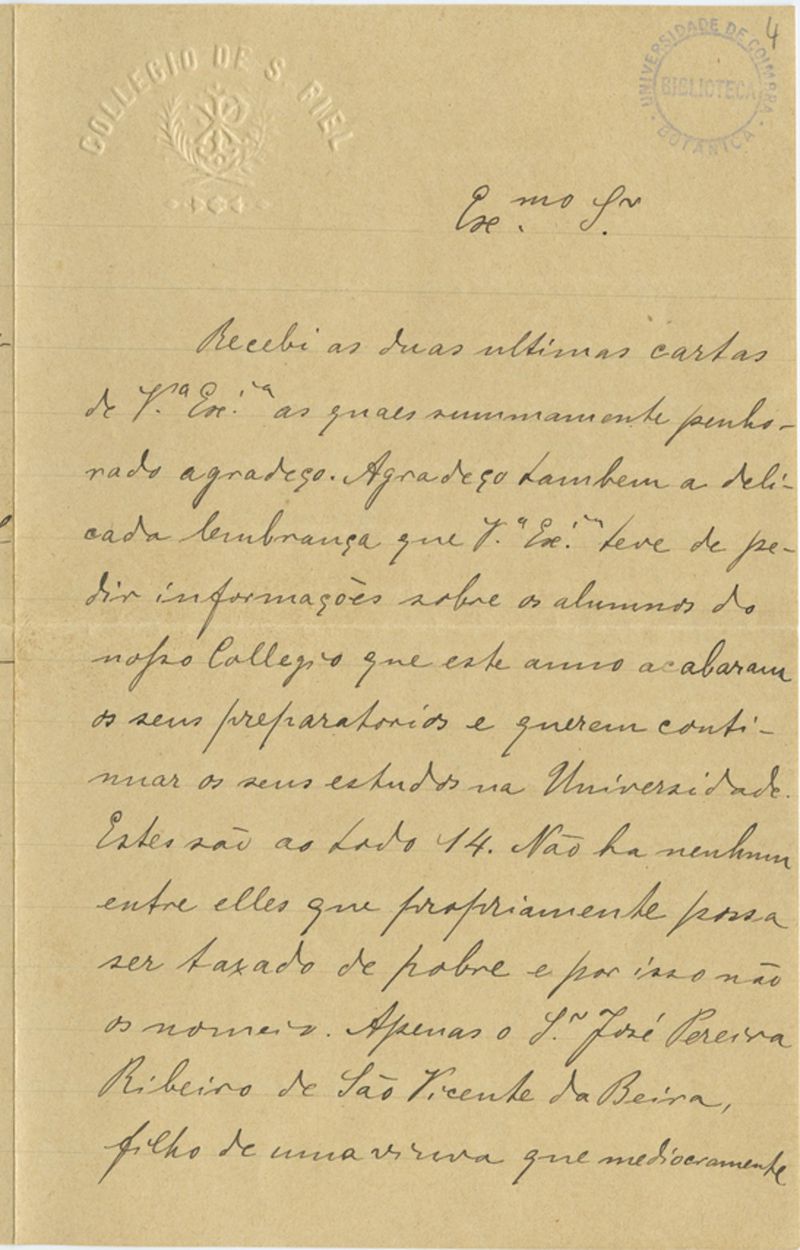 COLLEGIO DE S. FIEL
UNIVERSIDADE DE COIMBRA
BIBLIOTECA
BOTANICA
4
Ex.mo Sr.
Recebi as duas ultimas cartas
de V.ª Ex.ª as quaes summamente penho-
rado agradeço. Agradeço tambem a deli-
cada lembrança que V.ª Ex.ª teve de pe-
dir informações sobre os alumnos do
nosso Collegio que este anno acabaram
os seus preparatorios e querem conti-
nuar os seus estudos na Universidade.
Estes são ao todo 14. Não ha nenhum
entre elles que propriamente possa
ser taxado de pobre e por isso não
os nomeio. Apenas o S.r José Pereira
Ribeiro de São Vicente da Beira,
filho de uma viuva que mediocramente